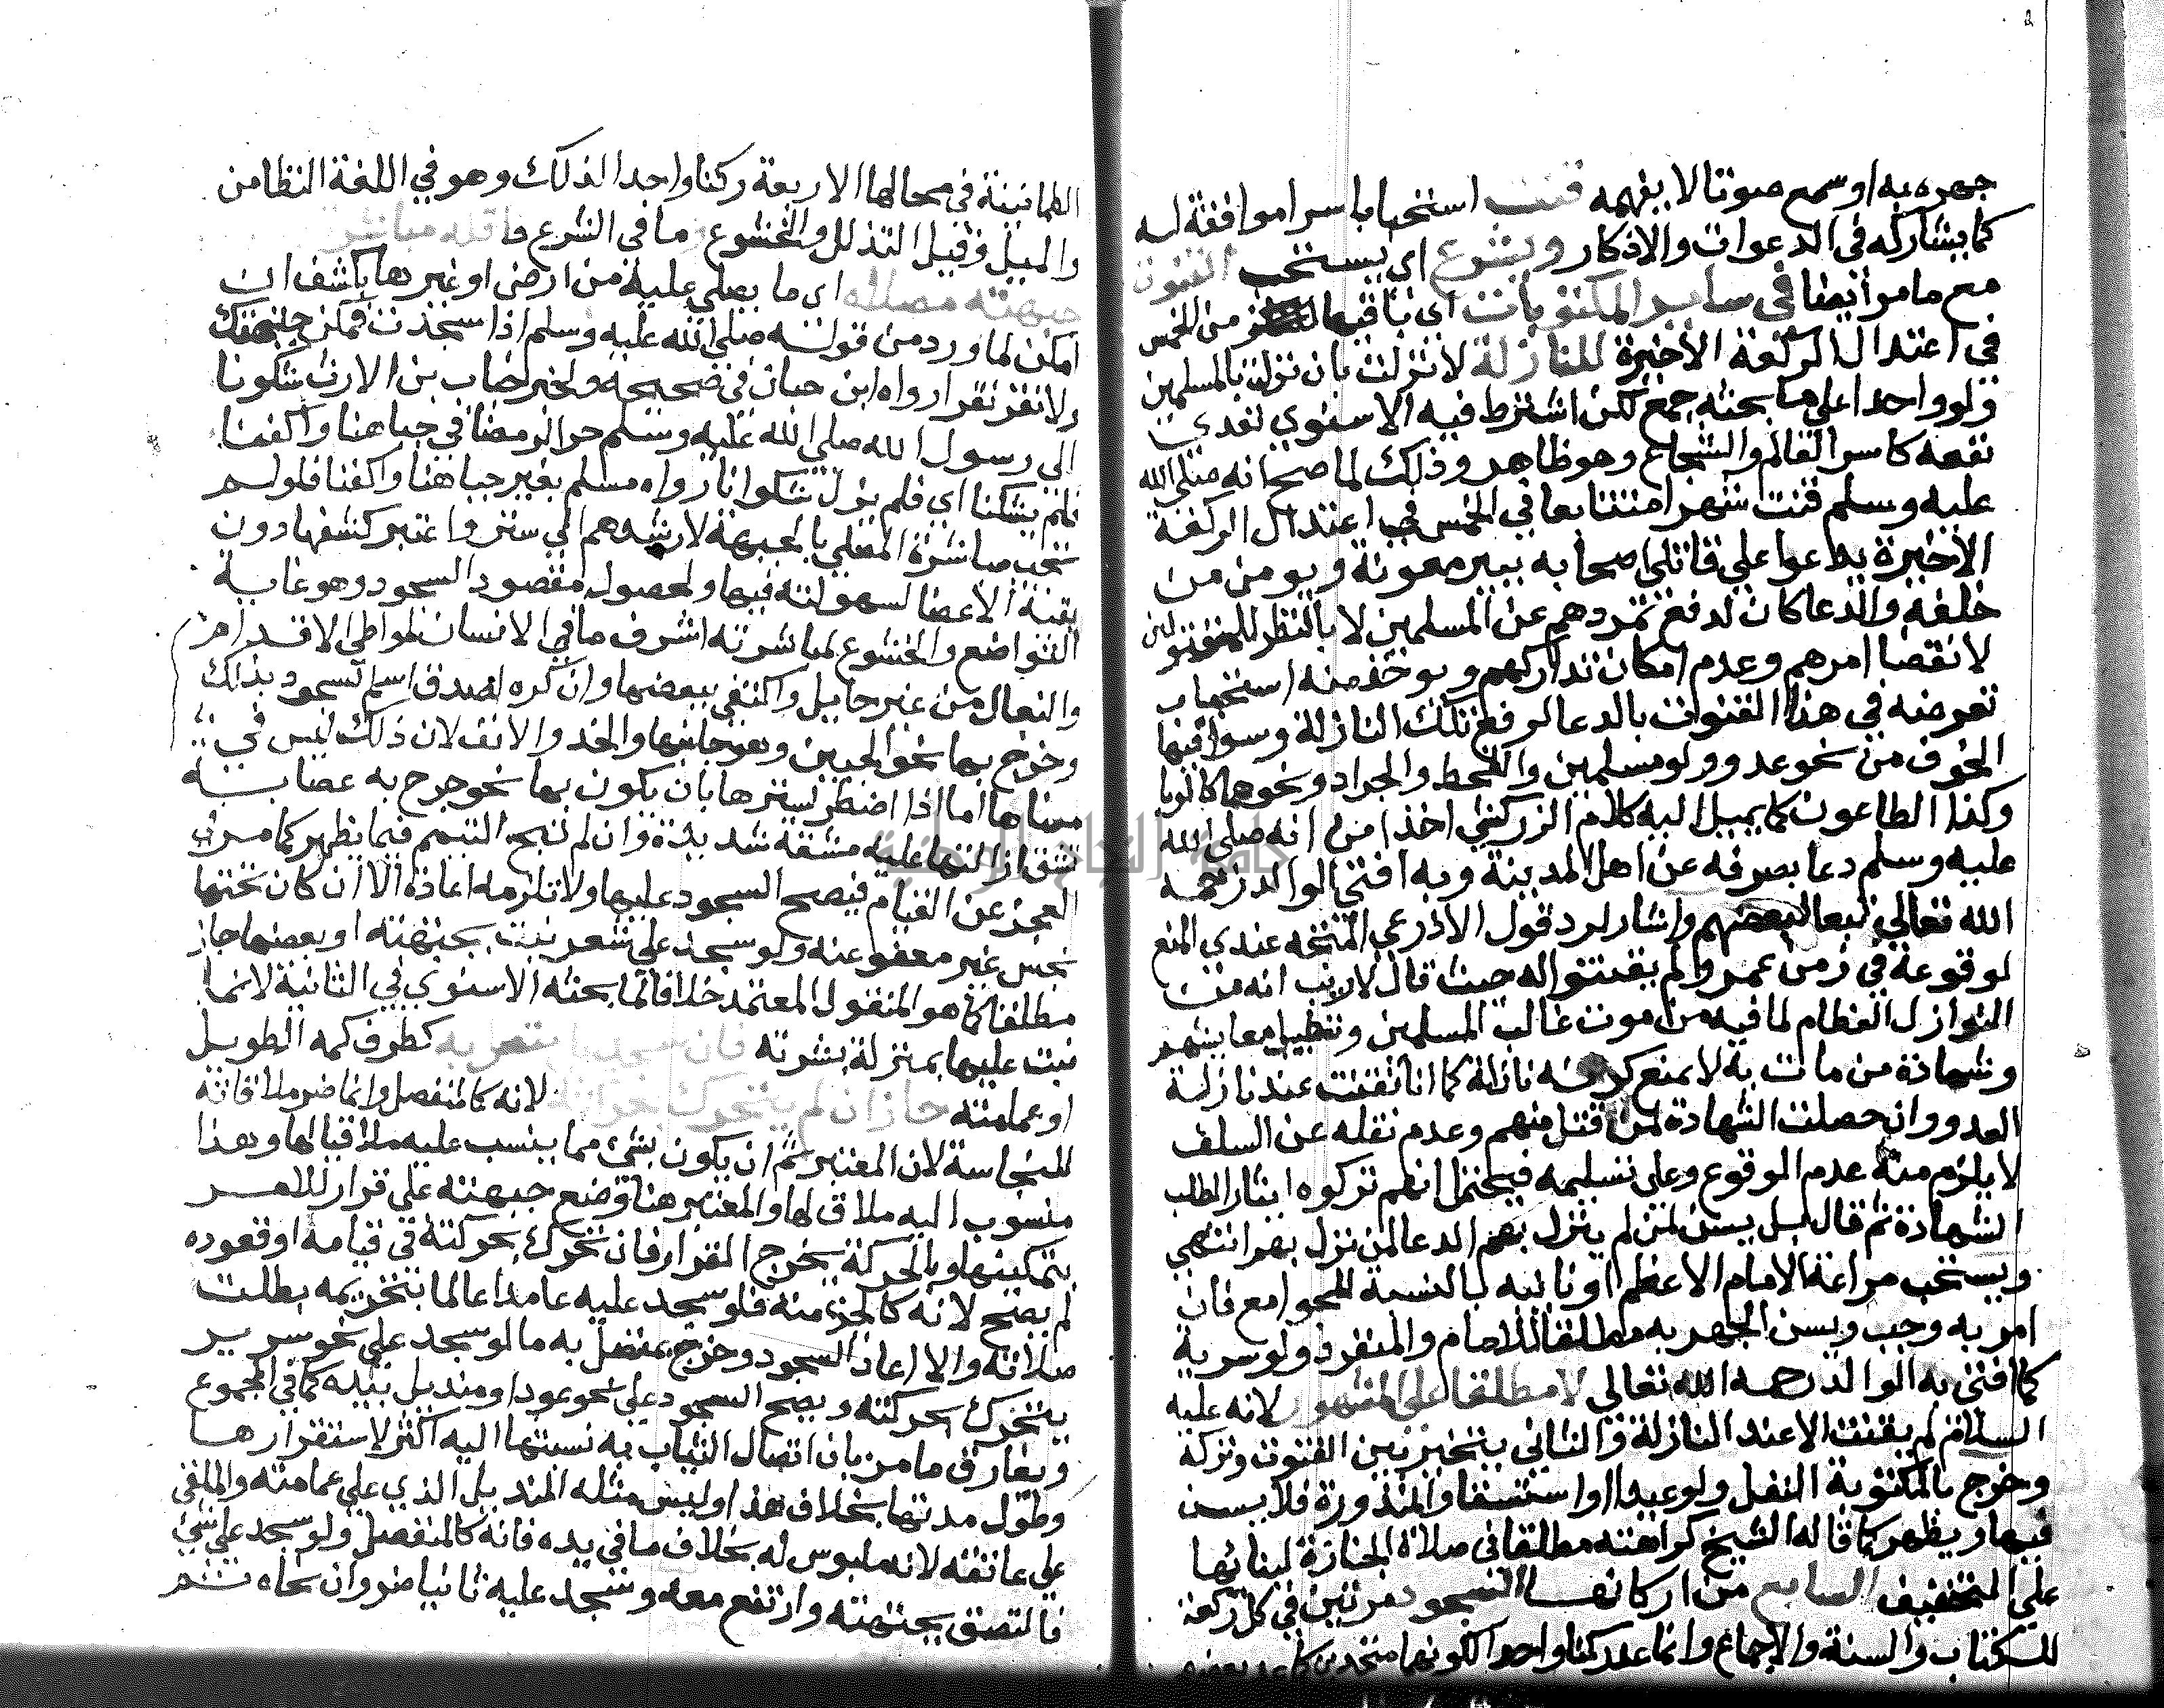 جهره به او سمع صوتا لا يفهمه قنت استحبابا سرا موافقة له
كما يشاركه في الدعوات والاذكار ويشرع اي يستحب القنوت
مع ما مر أيضا في سائر المكتوبات اي باقيها من الخمس
في اعتدال الركعة الأخيرة للنازلة لا نزلت بان نزلت بالمسلمين
ولو واحدا علي ما بحثه جمع لكن اشترط فيه الاسنوي تعدي
نفعه كاسر العالم والشجاع وهو ظاهر وذلك لما صح انه صلي الله
عليه وسلم قنت شهرا متتابعا في الخمس في اعتدال الركعة
الأخيرة يدعوا علي قاتلي اصحابه ببير معونة ويومن من
خلفه والدعا كان لدفع تمردهم عن المسلمين لا بالنظر للمقتولين
لانقضا امرهم وعدم امكان تداركهم ويوخذ منه استحباب
تعرضه في هذا القنوت بالدعا لرفع تلك النازلة وسوا فيها
الخوف من نحو عدو ولو مسلمين والقحط والجراد ونحوهما كالوبا
وكذا الطاعون كما يميل اليه كلام الزركشي اخذا من انه صلي الله
عليه وسلم دعا بصرفه عن اهل المدينة وبه افتي الوالد رحمه
الله تعالي تبعا لبعضهم واشار لرد قول الاذرعي المتجه عندي المنع
لوقوعه في زمن عمر ولم يقنتوا له حيث قال لا ريب انه من
النوازل العظام لما فيه من موت غالب المسلمين وتعطيل معايشهم
وشهادة من مات به لا يمنع كونه نازلة كما انا نقنت عند نازلة
العدو وان حصلت الشهادة لمن قتل منهم وعدم نقله عن السلف
لا يلزم منه عدم الوقوع وعلي تسليمه فيحتمل انهم تركوه ايثار الطلب
الشهادة ثم قال بل يسن لمن لم ينزل بهم الدعا لمن نزل بهم انتهي
ويستحب مراعة الامام الاعظم او نائبه بالنسبة للجوامع فان
امر به وجب ويسن الجهر به مطلقا للامام والمنفرد ولو سرية
كما افتي به الوالد رحمه الله تعالي لا مطلقا علي المشهور لانه عليه
السلام لم يقنت الا عند النازلة والثاني يتخير بين القنوت وتركه
وخرج بالمكتوبة النفل ولو عيدا او استسقا والمنذورة فلا يسن
فيها ويظهر كما قاله الشيخ كراهته مطلقا في صلاة الجنازة لبنائها
علي التخفيف السابع من اركانها السجود مرتين في كل ركعة
للكتاب والسنة والاجماع وانما عد ركنا واحدا لكونهما متحدين كما عد بعضهم
الطمانينة في محالها الاربعة ركنا واحدا لذلك وهو في اللغة التظامن
والميل وقيل التذلل والخشوع وما في الشرع فاقله مباشرة
جبهته مصلاه اي ما يصلي عليه من ارض او غيرها بكشف ان
امكن لما ورد من قوله صلي الله عليه وسلم اذا سجدت فمكن جبهتك
ولا تنقر نقرا رواه ابن حبان في صحيحه ولخبر خباب بن الارت شكونا
الي رسول الله صلي الله عليه وسلم حر الرمضا في جباهنا واكفنا
فلم يشكنا اي فلم يزل شكوانا رواه مسلم بغير جباهنا واكفنا فلو لم
تجب مباشرة المصلي بالجبهة لارشدهم الي سترها واعتبر كشفها دون
بقية الأعضا لسهولته فيها ولحصول مقصود السجود وهو غاية
التواضع والخشوع لمباشرته اشرف ما في الانسان لمواطي الاقدام
والنعال من غير حايل واكتفي ببعضها وان كره لصدق اسم السجود بذلك
وخرج بها نحو الجبين وهو جانبها والخد والانف لان ذلك ليس في
معناها اما اذا اضطر لسترها بان يكون بها نحو جرح به عصابة
تشق ازالتها عليه مشقة شديدة وان لم تبح التيمم فيما يظهر كما مر في
العجز عن القيام فيصح السجود عليها ولا تلزمه اعادة الا ان كان تحتها
نجس غير معفو عنه ولو سجد علي شعر نبت بجبهته او بعضها جاز
مطلقا كما هو المنقول المعتمد خلافا لما بحثه الاسنوي في الثانية لانما
نبت عليها بمنزلة بشرته فان سجد علي متصل به كطرف كمه الطويل
او عمامته جاز ان لم يتحرك بحركته لانه كالمنفصل وانما ضر ملاقاته
للنجاسة لان المعتبر ثم ان يكون بشئ مما ينسب عليه ملاقيا لها وهذا
منسوب اليه ملاق لها والمعتبر هنا وضع جبهته علي قرار للامر
بتمكينها وبالحركة يخرج القرار فان تحرك بحركته في قيامه او قعوده
لم يصح لانه كالجزء منه فلو سجد عليه عامدا عالما بتحريمه بطلت
صلاته والا اعاد السجود وخرج بمتصل به ما لو سجد علي نحو سرير
يتحرك بحركته ويصح السجود علي نحو عود او منديل بيده كما في المجموع
ويفارق ما مر بان اتصال الثياب به نسبتها اليه اكثر لاستقرارها
وطول مدتها بخلاف هذا وليس مثله المنديل الذي علي عمامته والملقي
علي عاتقه لانه ملبوس له بخلاف ما في يده فانه كالمنفصل ولو سجد علي شئ
فالتصق بجبهته وارتفع معه وسجد عليه ثانيا ضر وان نحاه ثم